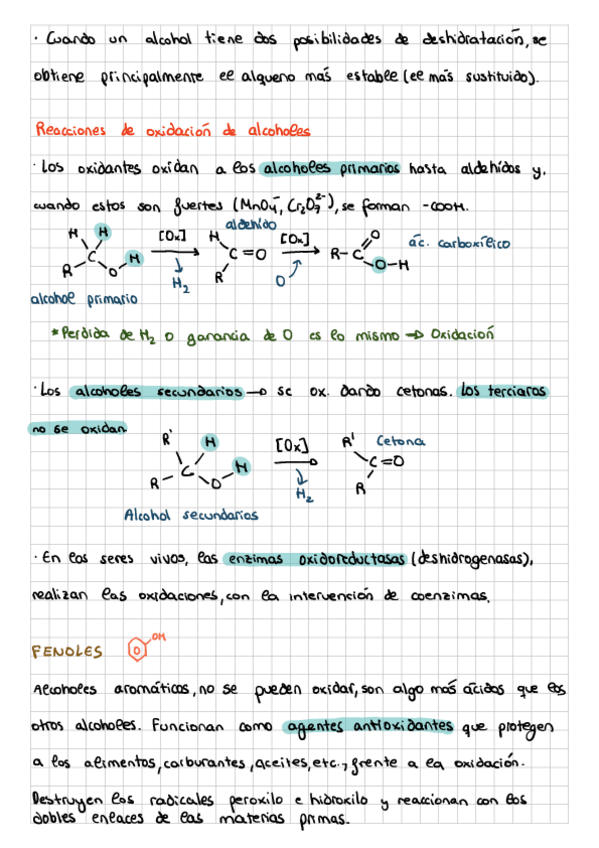 · Cuando un alcohol tiene dos posibilidades de deshidratación, se
obtiene principalmente el alqueno más estable (el más sustituido).
Reacciones de oxidación de alcoholes
· Los oxidantes oxidan a los alcoholes primarios hasta aldehídos y,
cuando estos son fuertes (MnO₄⁻, Cr₂O₇²⁻), se forman -COOH.
aldehído
H H [Ox] H [Ox] O ác. carboxílico
C C=O R-C
R O H R O-H
H₂ O
alcohol primario
*Perdida de H₂ o ganancia de O es lo mismo → Oxidación
· Los alcoholes secundarios → se ox. dando cetonas. Los terciaros
no se oxidan.
R' H [Ox] R' Cetona
C H C=O
R O H₂ R
Alcohol secundarios
· En los seres vivos, las enzimas oxidoreductasas (deshidrogenasas),
realizan las oxidaciones, con la intervención de coenzimas.
FENOLES OH
Alcoholes aromáticos, no se pueden oxidar, son algo más ácidos que los
otros alcoholes. Funcionan como agentes antioxidantes que protegen
a los alimentos, carburantes, aceites, etc., frente a la oxidación.
Destruyen los radicales peroxilo e hidroxilo y reaccionan con los
dobles enlaces de las materias primas.